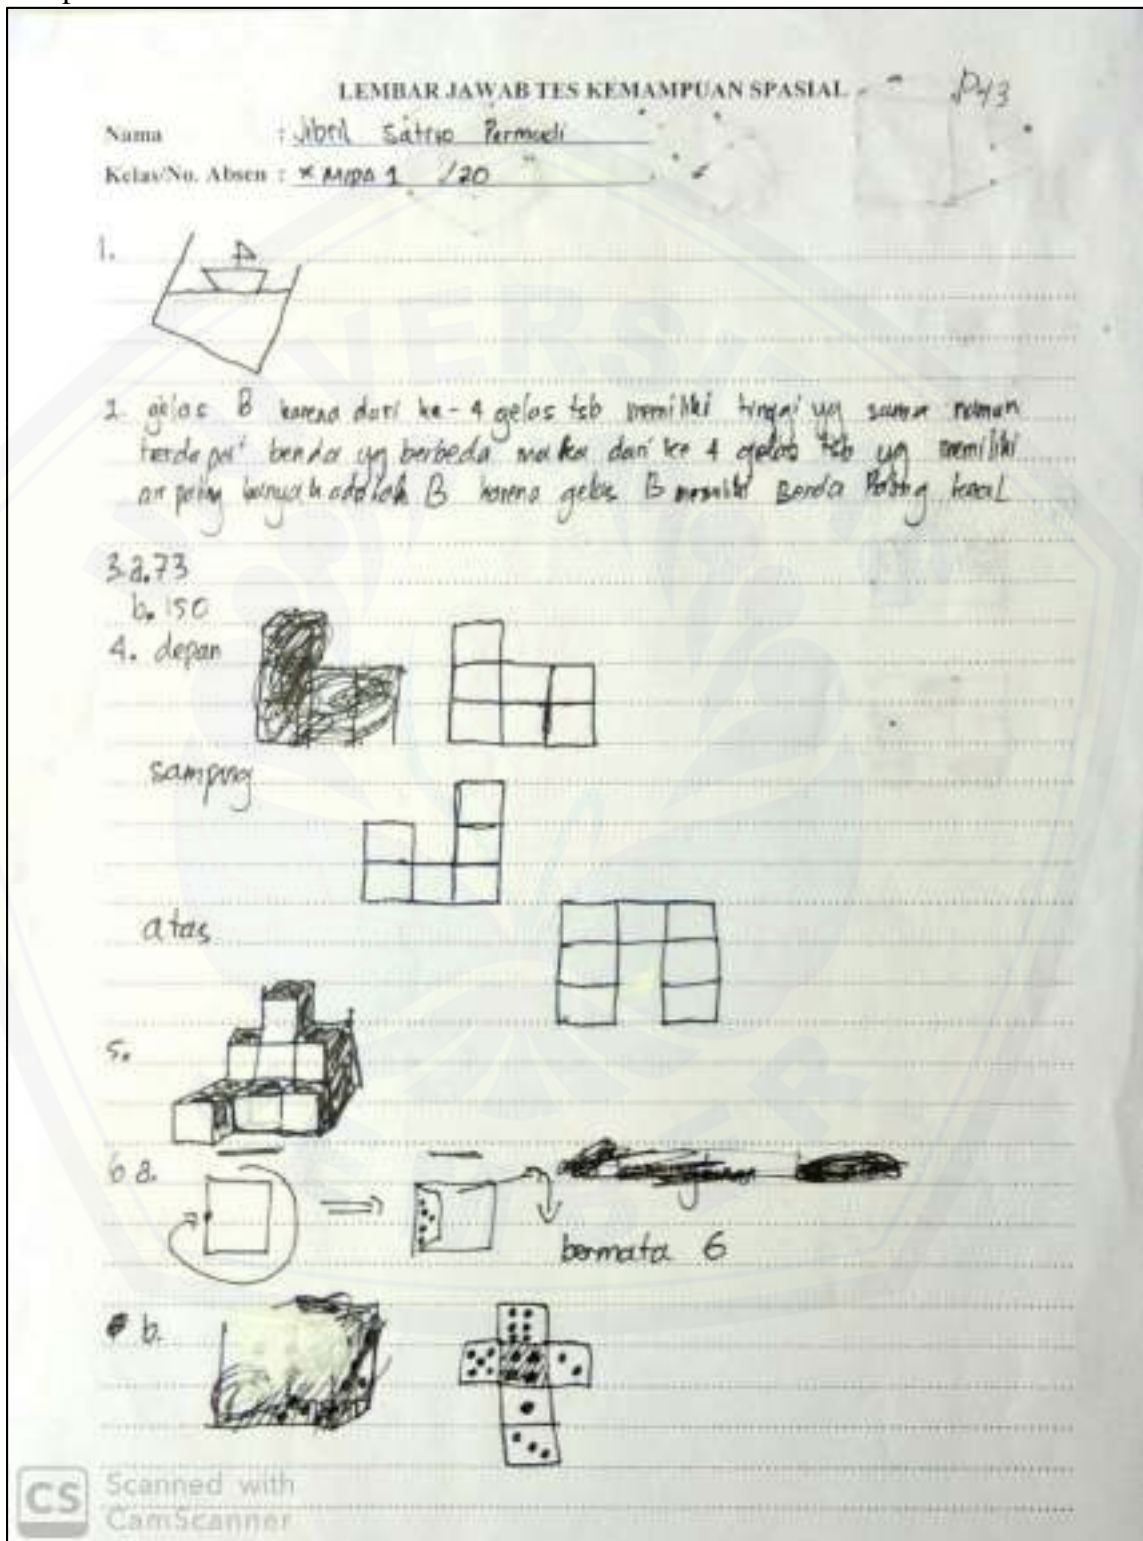 LEMBAR JAWAB TES KEMAMPUAN SPASIAL
P43
Nama : Jibril Satrio Permadi
Kelas/No. Absen : X MIPA 1 /20
1.
2. gelas B karena dari ke-4 gelas tsb memiliki tinggi yg sama namun
terdapat benda yg berbeda maka dari ke 4 gelas tsb yg memiliki
air paling banyak adalah B karena gelas B memiliki Benda Paling kecil
3.a.73
b. 150
4. depan
samping
atas
5.
6 a.
bermata 6
b.
CS Scanned with
CamScanner